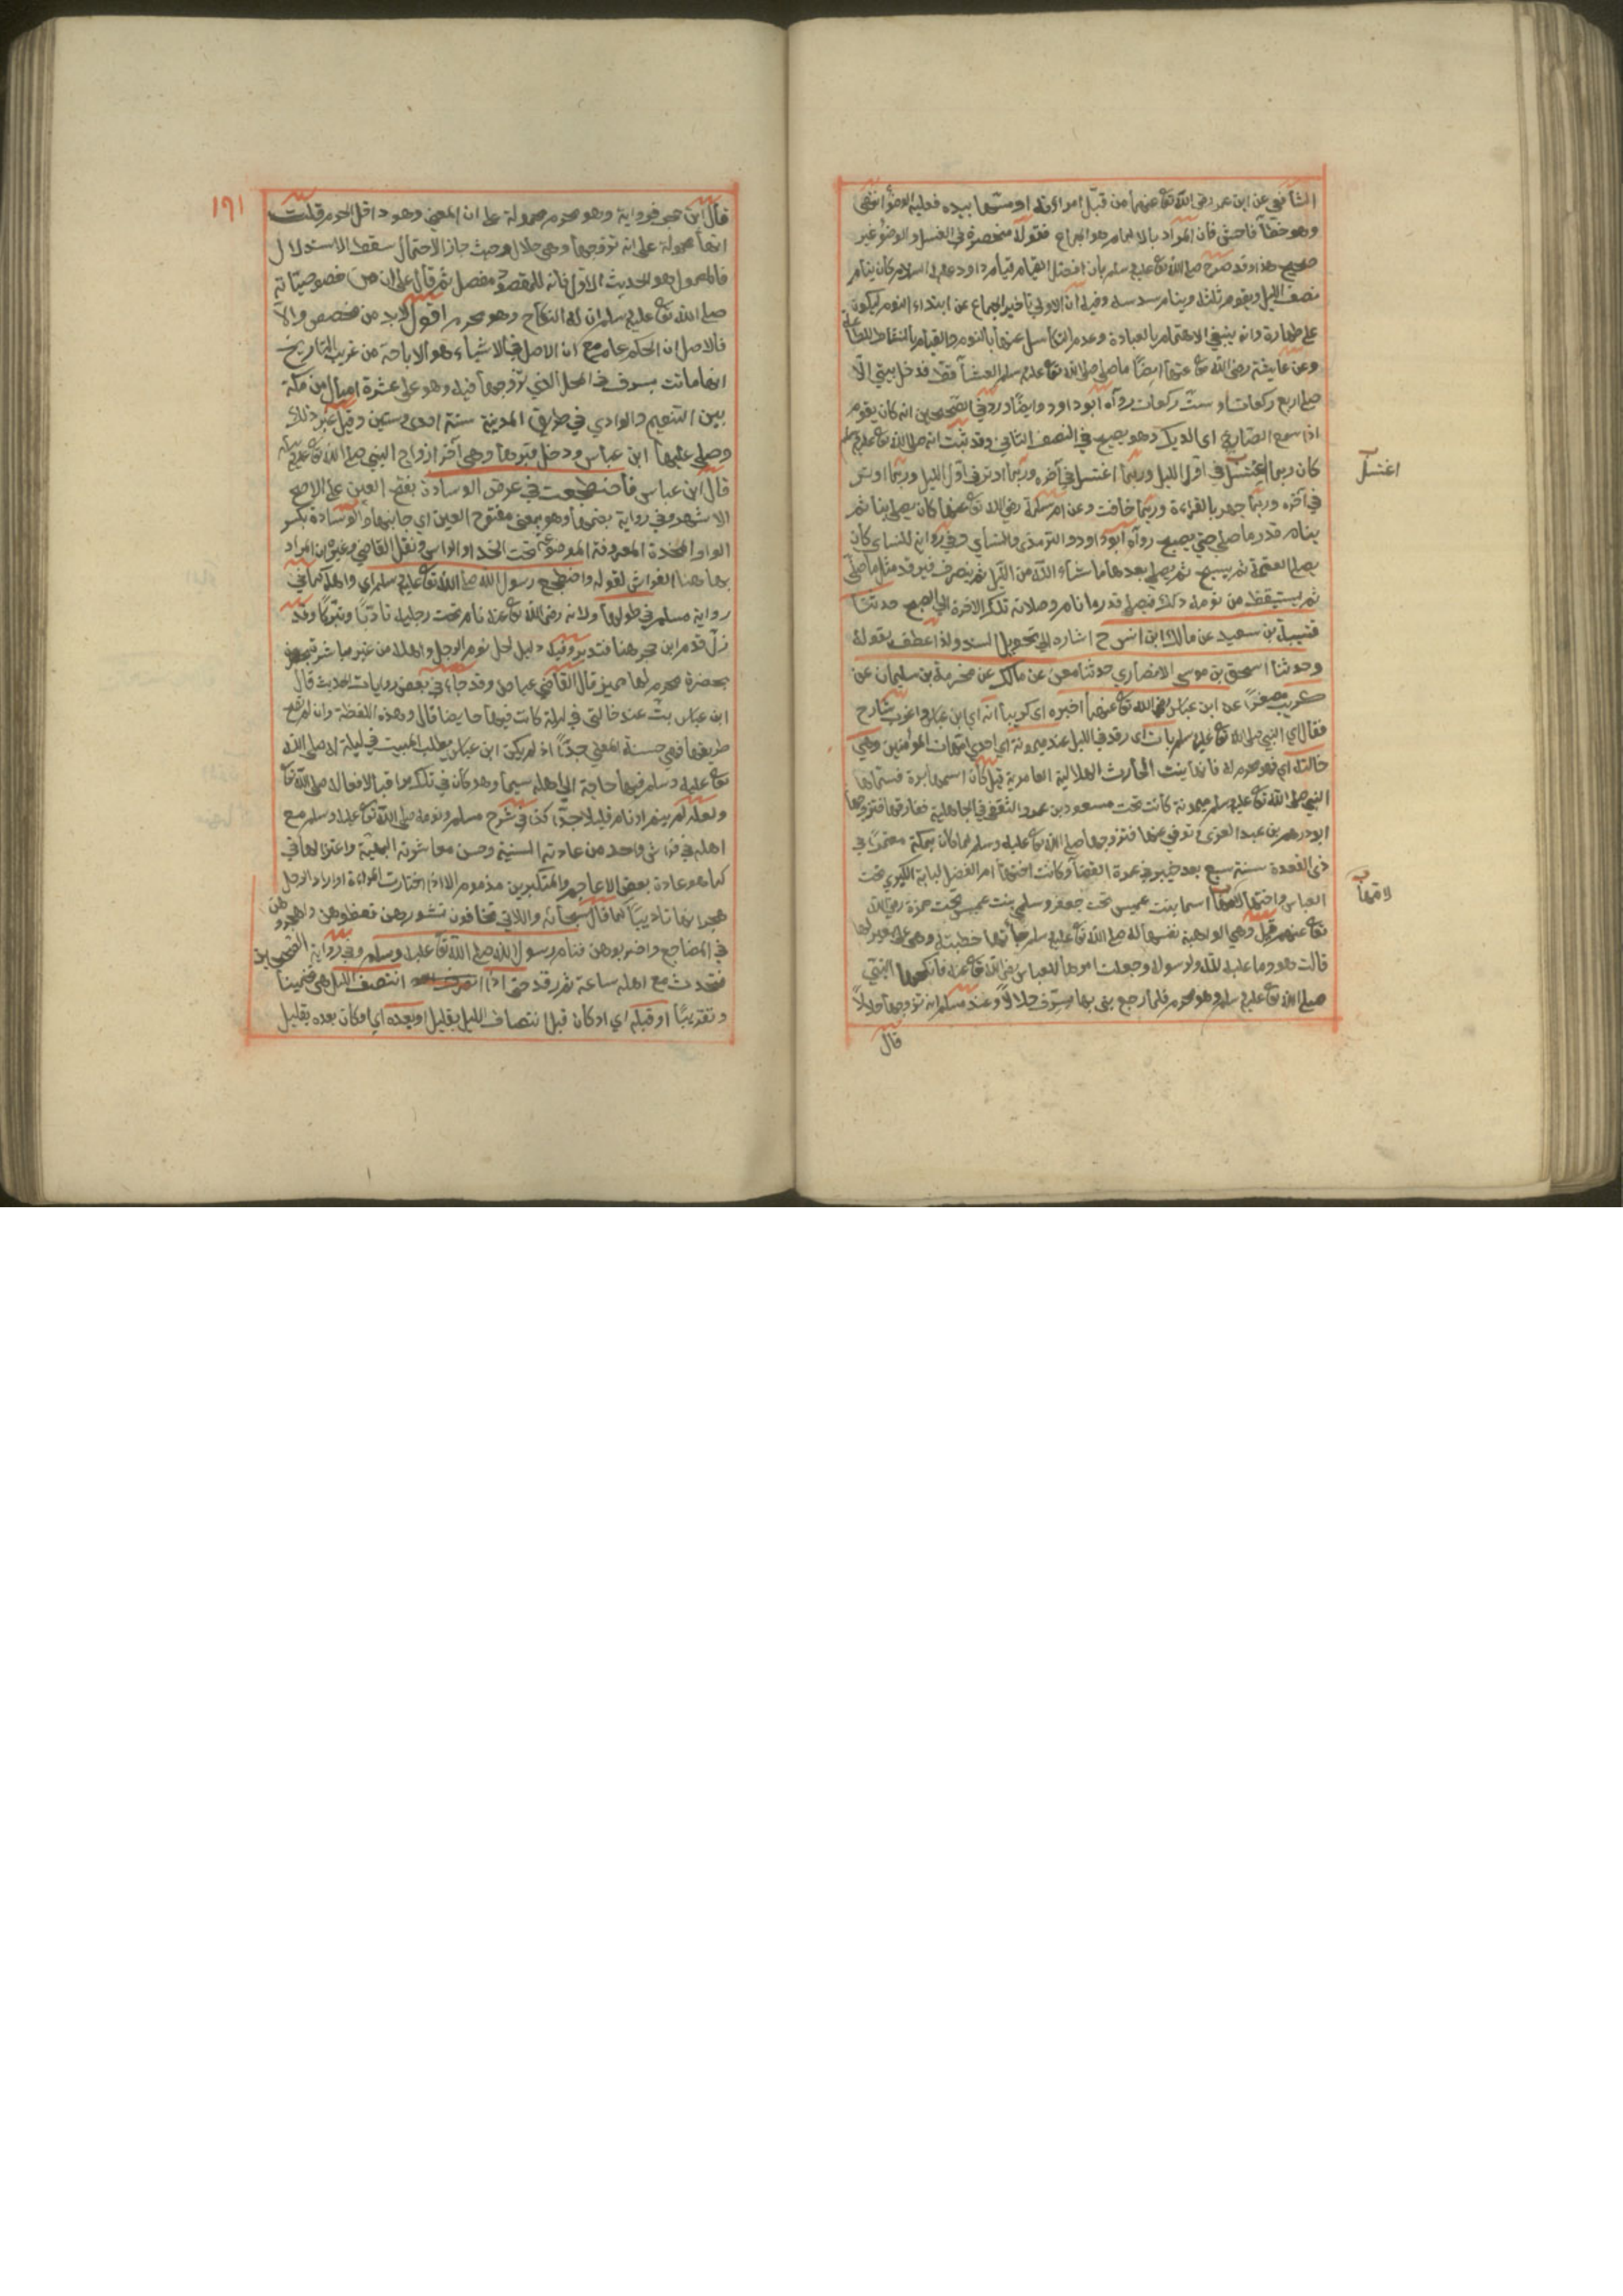 الشافعي عن ابن عمر رضي الله تع عنهما من قبّل امراءته او مسّها بيده فعليه الوضوء انتهى
وهو خطأ فاحش فان المراد بالالمام هو الجماع فقوله منحصرة في الغسل والوضوء غير
صحيح هذا وقد صرح صلى الله تع عليه وسلم بان افضل القيام قيام داود عليه السلام كان ينام
نصف الليل ويقوم ثلثه وينام سدسه وفيه ان الاولى تاخير الجماع عن ابتداء النوم ليكون
على طهارة وانه ينبغي الاهتمام بالعبادة وعدم التكاسل عنها بالنوم والقيام بالنشاط للطاعة
وعن عايشة رضى الله تع عنها ايضًا ما صلى صلى الله تع عليه وسلم العشآ قط فدخل بيتي الّا
صلى اربع ركعات او ستّ ركعات رواه ابو داود وايضًا ورد في الصحيحين انه كان يقوم
اذا سمع الصارخ اى الديك وهو يصيح في النصف الثاني وقد ثبت انه صلى الله تع عليه وسلم
كان ربما اغتسل في اوّل الليل وربما اغتسل في آخره وربما اوتر في اول الليل وربما اوتر
في آخره وربما جهر بالقراءة وربما خافت وعن ام سلمة رضي الله تع عنها كان يصلي بنا ثم
ينام قدر ما صلى حتى يصبح رواه ابو داود والترمذى والنسأي وفي رواية للنسأي كان
يصلى العتمة ثم يسبح ثم يصلى بعدها ما شاء الله من الليل ثم ينصرف فيرقد مثل ما صلى
ثم يستيقظ من نومه ذلك فيصلى قدر ما نام وصلاته تلك الاخرة الى الصبح حدثنا
قتيبة بن سعيد عن مالك ابن انس ح اشارة الى تحويل السند ولذا عطف بقوله
وحدثنا اسحق بن موسى الانصاري حدثنا معن عن مالك عن مخرمة بن سليمان عن
كريب مصغرًا عن ابن عباس رضي الله تع عنهما اخبره اى كريبا انه اي ابن عباس واغرب شارح
فقال اي النبي صلى الله تع عليه وسلم بات اى رقد في الليل عند ميمونة اى احدى امهات المؤمنين وهي
خالته اي فهو محرم له فانها بنت الحارث الهلالية العامرية قيل كان اسمها برة فسماها
النبي صلى الله تع عليه وسلم ميمونة كانت تحت مسعود بن عمرو الثقفي في الجاهلية ففارقها فتزوجها
ابو درهم بن عبد العزى وتوفي عنها فتزوجها صلى الله تع عليه وسلم لما كان بمكة معتمرًا في
ذى القعدة سنة سبع بعد خيبر في عمرة القضآ وكانت اختها ام الفضل لبابة الكبرى تحت
العباس واختها لامها اسما بنت عميس تحت جعفر وسلمى بنت عميس تحت حمزة رضي الله
تع عنهم قيل وهي الواهبة نفسها له صلى الله تع عليه وسلم جأتها خطبته وهي على بعير لها
قالت هو وما عليه لله ولرسوله وجعلت امرها للعباس رضي الله تع عنه فانكحها النبي
صلى الله تع عليه وسلم وهو محرم فلما رجع بنى بها بسرف حلالاً وعند مسلم انه تزوجها حلالاً
قال
اغتسل
لامها
١٦١
قال ابن حجر فرواية وهو محرم محمولة على ان المعنى وهو داخل الحرم قلت
انها محمولة على انه تزوجها وهى حلال وحيث جاز الاحتمال سقط الاستدلال
فالمعمول هو الحديث الاوّل فانه للمقصود مفصل ثم قال على ان من خصوصيّاته
صلى الله تع عليه وسلم ان له النكاح وهو محرم اقول لابد من مخصص والاّ
فالاصل ان الحكم عام مع ان الاصل في الاشياء هو الاباحة من غريب التاريخ
انها ماتت بسرف في المحل الذي تزوجها فيه وهو على عشرة اميال من مكة
بين التنعيم والوادي في طريق المدينة سنة احدى وستين وقيل غير ذلك
وصلى عليها ابن عباس ودخل قبرها وهى آخر ازواج النبي صلى الله تع عليه وسلم
قال ابن عباس فاضطجعت في عرض الوسادة بفتح العين على الاصح
الاشهر وفي رواية بضمها وهو بمعنى مفتوح العين اي جانبها والوسادة بكسر
الواو المخدة المعروفة الموضوعة تحت الخد او الراس ونقل القاضي وغيره ان المراد
بها هنا الفراش لقوله واضطجع رسول الله صلى الله تع عليه وسلم اي واهله كما في
رواية مسلم في طولها ولانه رضي الله تع عنه نام تحت رجليه تادّبًا وتبركًا وقد
زل قدم ابن حجر هنا فتدبر وفيه دليل لحل نوم الرجل واهله من غير مباشرة
بحضرة محرم لها مميز قال القاضي عياض وقد جاء في بعض روايات الحديث قال
ابن عباس بتّ عند خالتي في ليلة كانت فيها حايضا قال وهذه اللفظة وان لم تصح
طريقها فهي حسنة المعنى جدًّا اذ لم يكن ابن عباس يطلب المبيت في ليلة له صلى الله
تع عليه وسلم فيها حاجة الى اهله سيما وهو كان في تلك مراقبا لافعاله صلى الله تع
ولعله لم ينم او نام قليلا جدّا كذا في شرح مسلم ونومه صلى الله تع عليه وسلم مع
اهله في فراش واحد من عادته السنية وحسن معاشرته البهية واعتزالها في
كما هو عادة بعض الاعاجم والمتكبرين مذموم الا اذا اختارت المراءة او اراد الرجل
هجرانها تاديبًا كما قال سبحانه واللاتي تخافون نشوزهن فعظوهن واهجروهن
في المضاجع واضربوهن فنام رسول الله صلى الله تع عليه وسلم وفي رواية الصحيحين
فتحدث مع اهله ساعة ثم رقد حتى اذا انتصف الليل هى تخمينًا
وتقريبًا او قبله اي او كان قبل انتصاف الليل بقليل او بعده اي او كان بعده بقليل